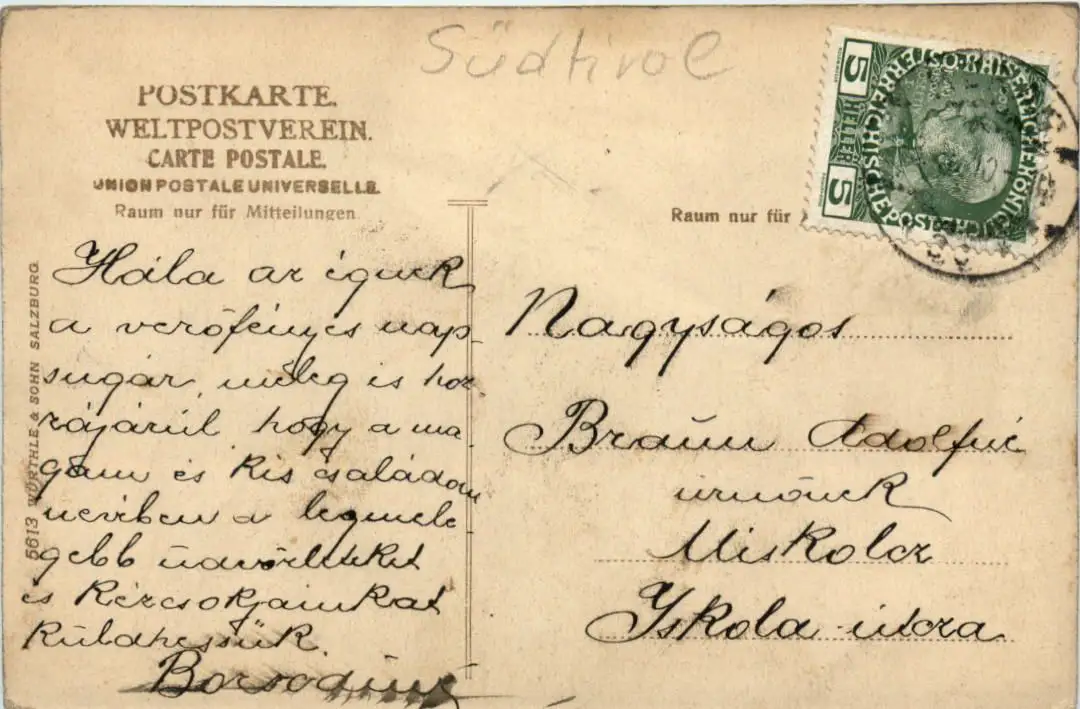 Südtirol
POSTKARTE.
WELTPOSTVEREIN.
CARTE POSTALE.
UNION POSTALE UNIVERSELLE.
Raum nur für Mitteilungen
Raum nur für
5 HELLER 5
KAISERLICHE KÖNIGLICHE ÖSTERREICHISCHE POST
5613 WÜRTHLE & SOHN SALZBURG.
Hála az égnek
a verőfényes nap
sugár, meleg is hoz
zájárúl, hogy a ma-
gam és kis családom
nevében a legmele
gebb üdvözleteket
és kézcsókjainkat
küldhessük.
Nagyságos
Braun Adolfné
úrnőnek
Miskolcz
Iskola útcza